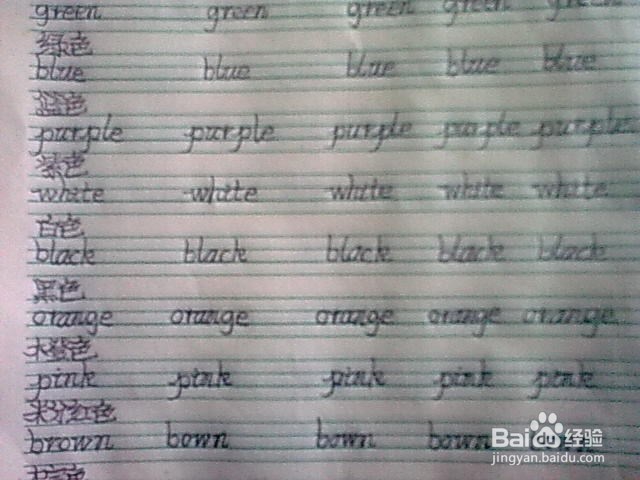 green green green green green
绿色
blue blue blue blue blue
蓝色
purple purple purple purple purple
紫色
white white white white white
白色
black black black black black
黑色
orange orange orange orange orange
木登色
pink pink pink pink pink
米分红色
brown bown bown bown
Baidu经验
jingyan.baidu.com